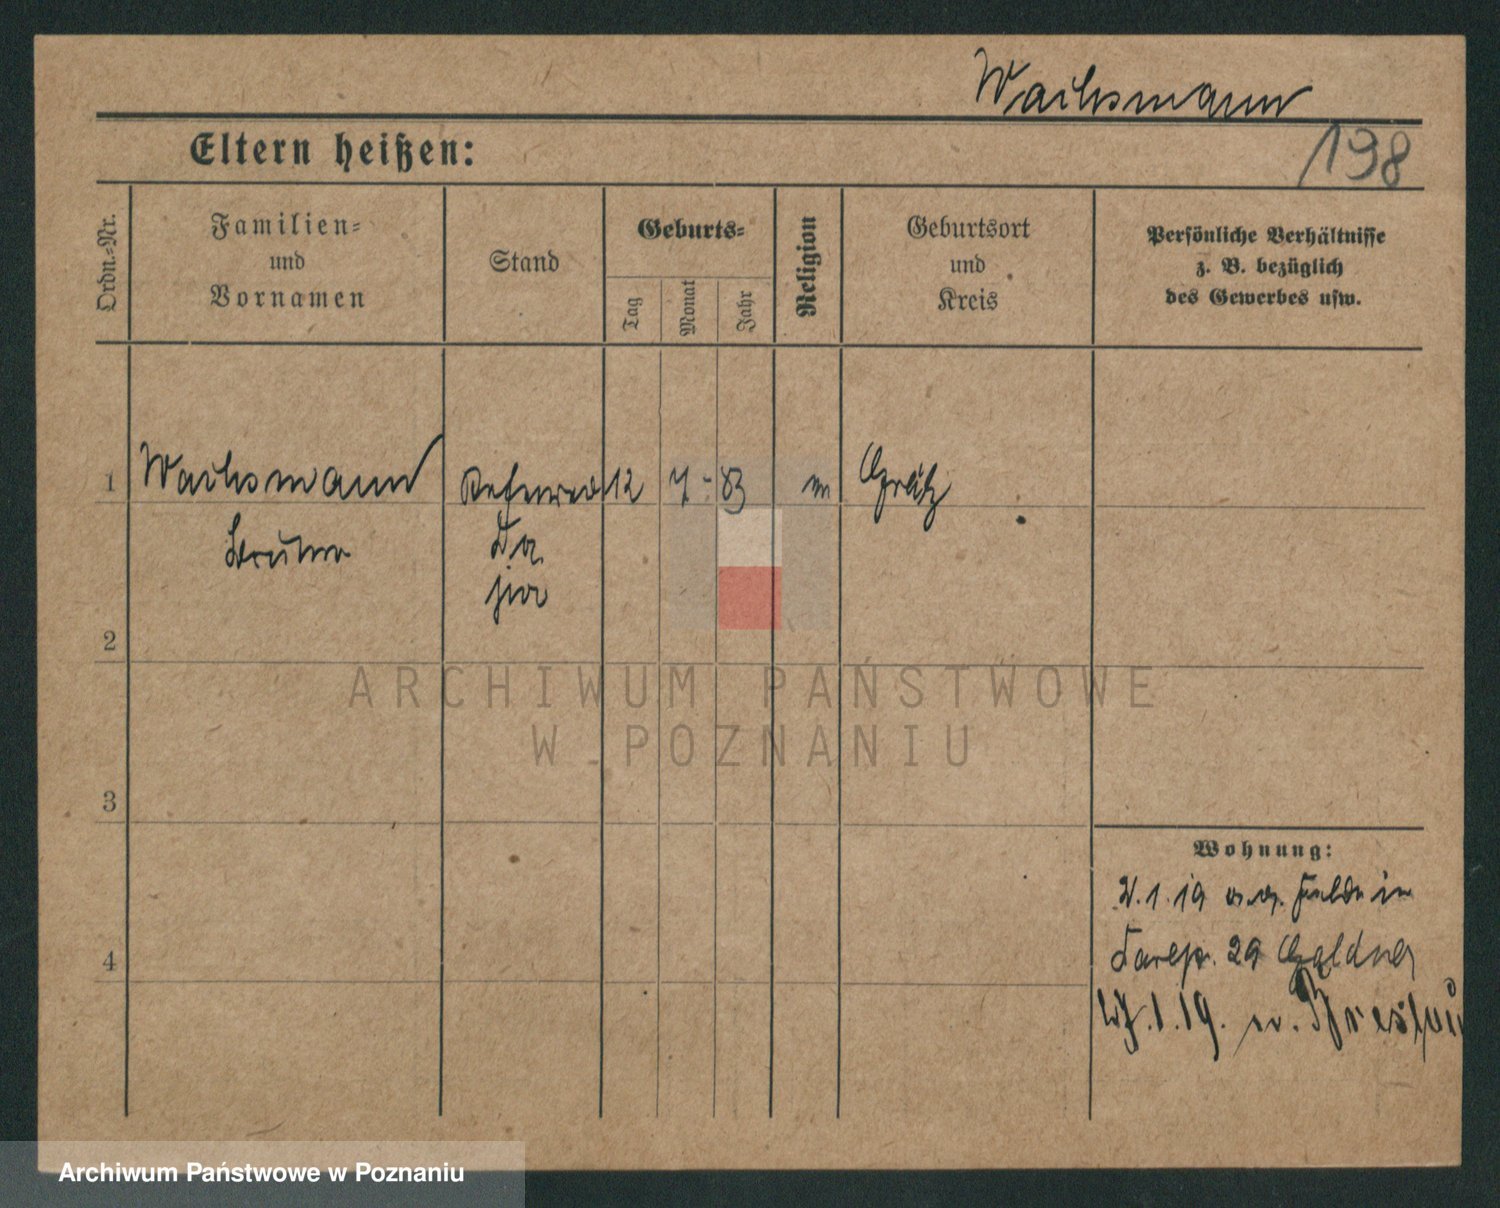 Wachsmann
198
Eltern heißen:
Ordn.-Nr.
Familien-
und
Vornamen
Stand
Geburts-
Tag
Monat
Jahr
Religion
Geburtsort
und
Kreis
Persönliche Verhältnisse
z. B. bezüglich
des Gewerbes usw.
1
Wachsmann
12
7.
83
m
Grätz
Bruno
2
ARCHIWUM PAŃSTWOWE
W POZNANIU
3
Wohnung:
.1.19 in
29
4
.1.19. Breslau
Archiwum Państwowe w Poznaniu